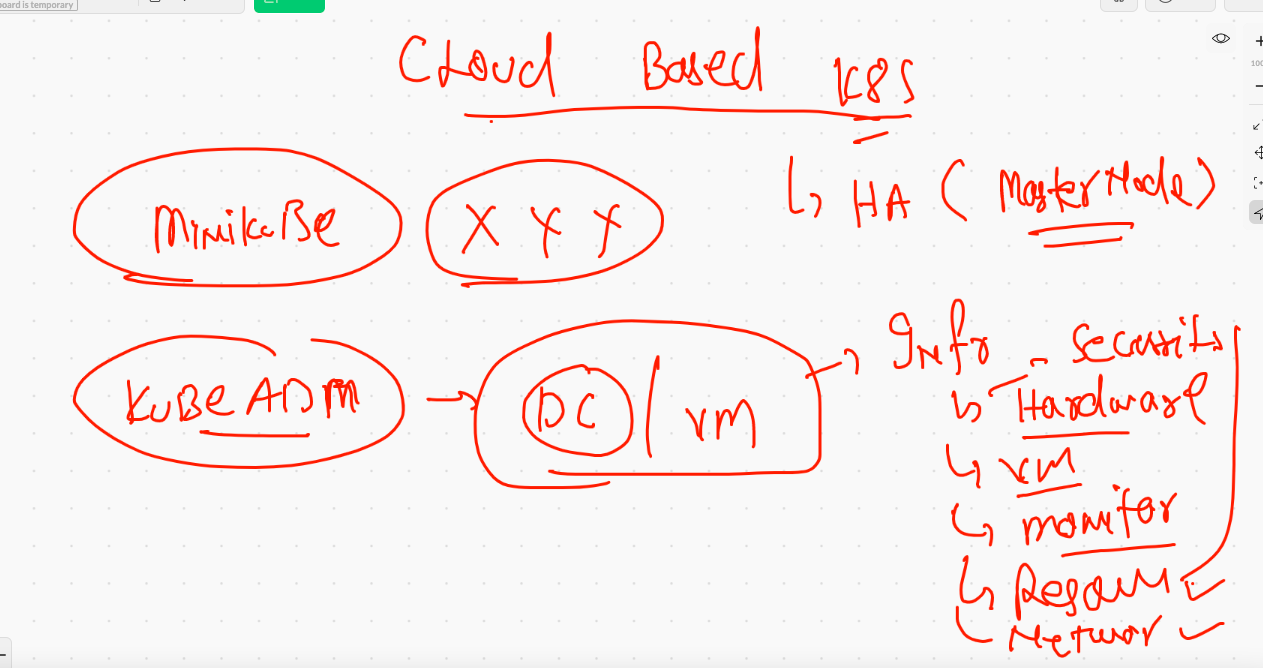 board is temporary
CLoud Based K8S
HA (Master Node)
MinikuBe
X Y Y
KuBe ADM
DC / VM
Infr
Security
Hardware
VM
monitor
Networ